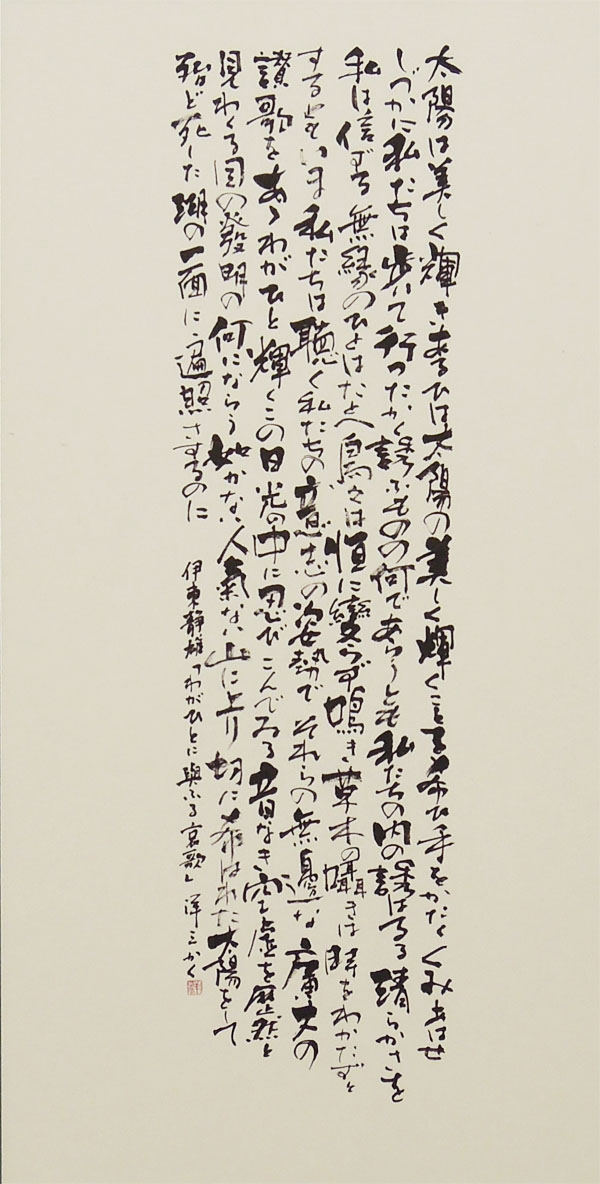 太陽は美しく輝きあるひは太陽の美しく輝くことを希ひ手をかたくくみあはせ
しづかに私たちは歩いて行つたかく誘ふものの何であらうとも私たちの内の誘はるる清らかさを
私は信ずる無縁のひとはたとへ鳥々は恒に變らず鳴き草木の囁きは時をわかたずと
するともいま私たちは聴く私たちの意志の姿勢でそれらの無邊な廣大の
讃歌をあゝわがひと輝くこの日光の中に忍びこんでゐる音なき空虚を歴然と
見わくる目の發明の何にならう如かない人氣ない山に上り切に希はれた太陽をして
殆ど死した湖の一面に遍照さするのに
伊東静雄「わがひとに與ふる哀歌」 洋三かく